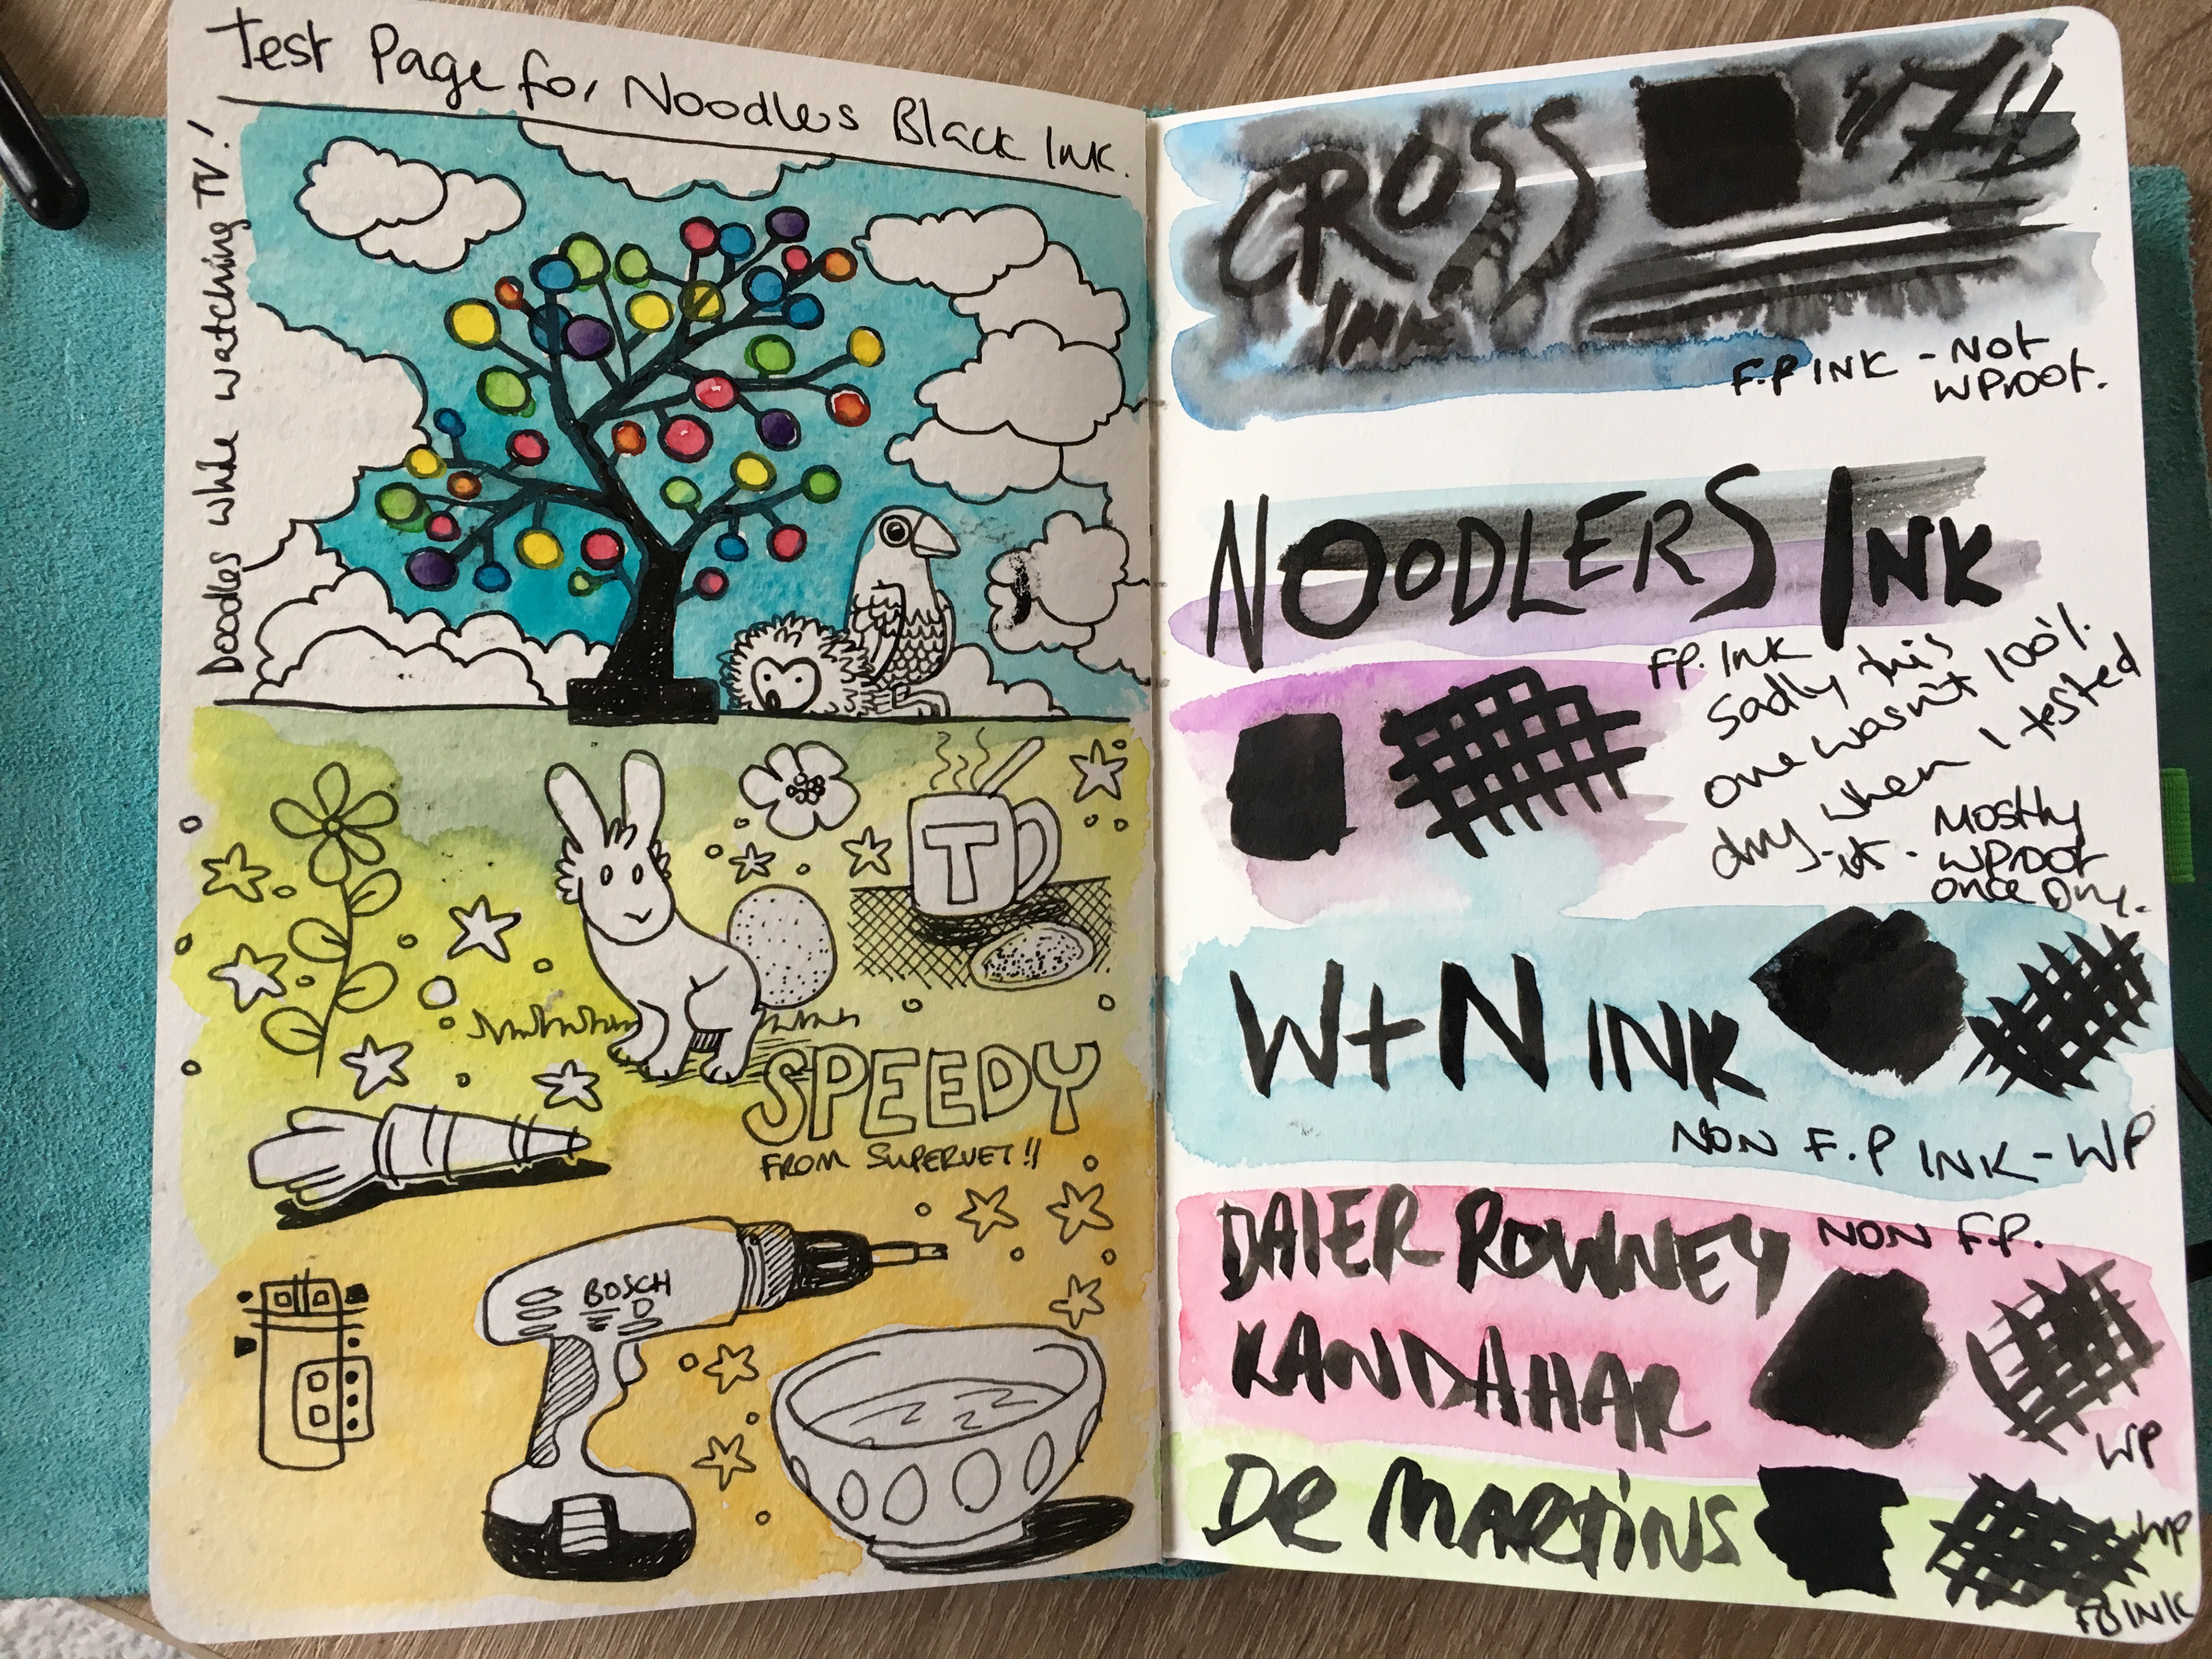 Test Page for Noodlers Black Ink.
Doodles while watching TV!
T
SPEEDY
FROM SUPERVET!!
BOSCH
CROSS
INK
F.P INK - Not
WProof.
NOODLERS INK
FP. Ink
Sadly this
one wasn't 100%
dry when I tested
it. - Mostly
WProof
once Dry.
W+N INK
NON F.P INK - WP
DALER ROWNEY
NON F.P.
KANDAHAR
WP
DR MARTINS
WP
INK